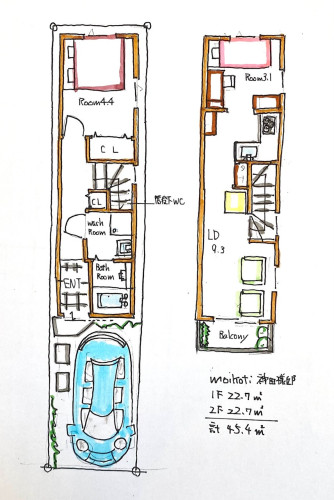 Room4.4
CL
CL
階段下WC
wash
Room
Bath
Room
ENT
Room3.1
LD
9.3
Balcony
1F 22.7㎡
2F 22.7㎡
計 45.4㎡